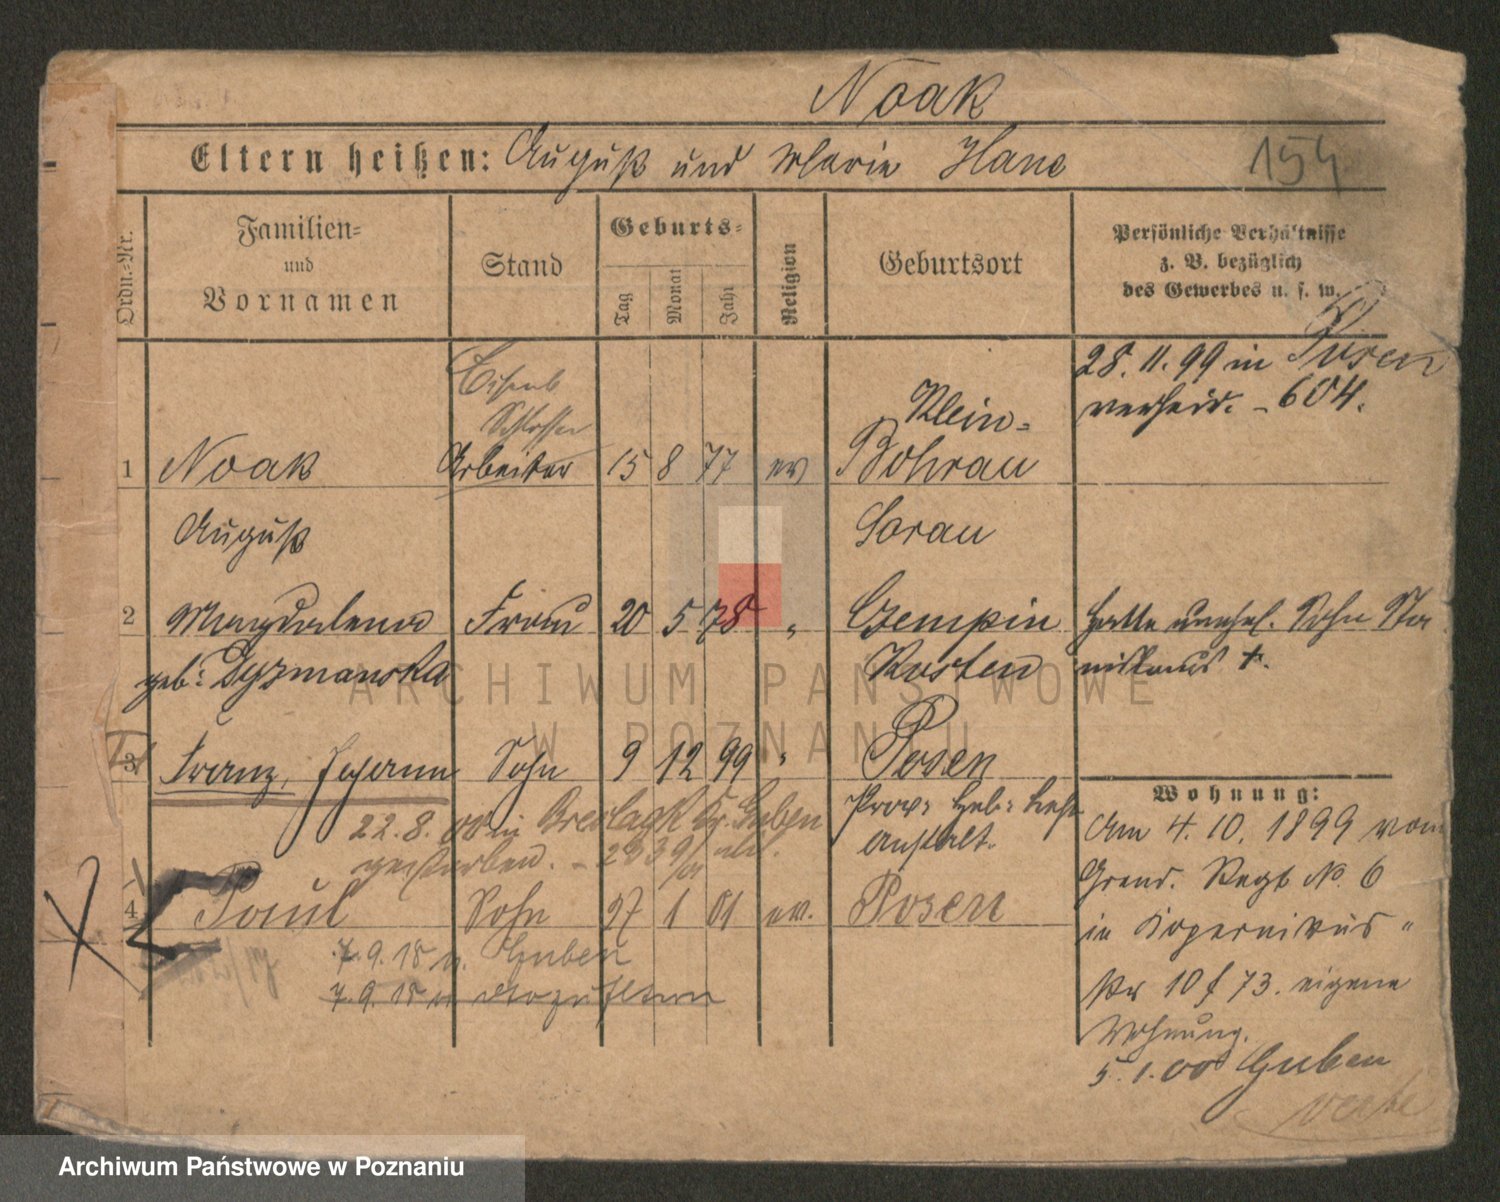 Noak
Eltern heißen: August und Marie Hanc
154
Ordn.-Nr.
Familien-
und
Vornamen
Stand
Geburts-
Tag
Monat
Jahr
Religion
Geburtsort
Persönliche Verhältnisse
z. B. bezüglich
des Gewerbes u. s. w.
Eisenb
Schlosser
1 Noak Arbeiter 15 8 77 ev
Klein-
Bohrau
28. 11. 99 in Posen
verheir. - 604.
August
Sorau
2 Magdalena Frau 20 5 78 "
geb: Dyzmanska
Czempin
Kosten
hatte unehel. Sohn Sta
nislaus †.
3 Franz, Johann Sohn 9 12 99 "
Posen
Prov: Heb: Lehr
anstalt.
22. 8. 00 in Breslack Kr. Guben
gestorben.
4 Paul Sohn 27 1 01 ev. Posen
7. 9. 18 n. Guben
7. 9. 18 n.
Wohnung:
Am 4. 10. 1899 vom
Grend. Regt No. 6
in Kopernikus-
str 10 f 73. eigene
Wohnung.
5. 1. 00 Guben
ARCHIWUM PAŃSTWOWE
W POZNANIU
Archiwum Państwowe w Poznaniu